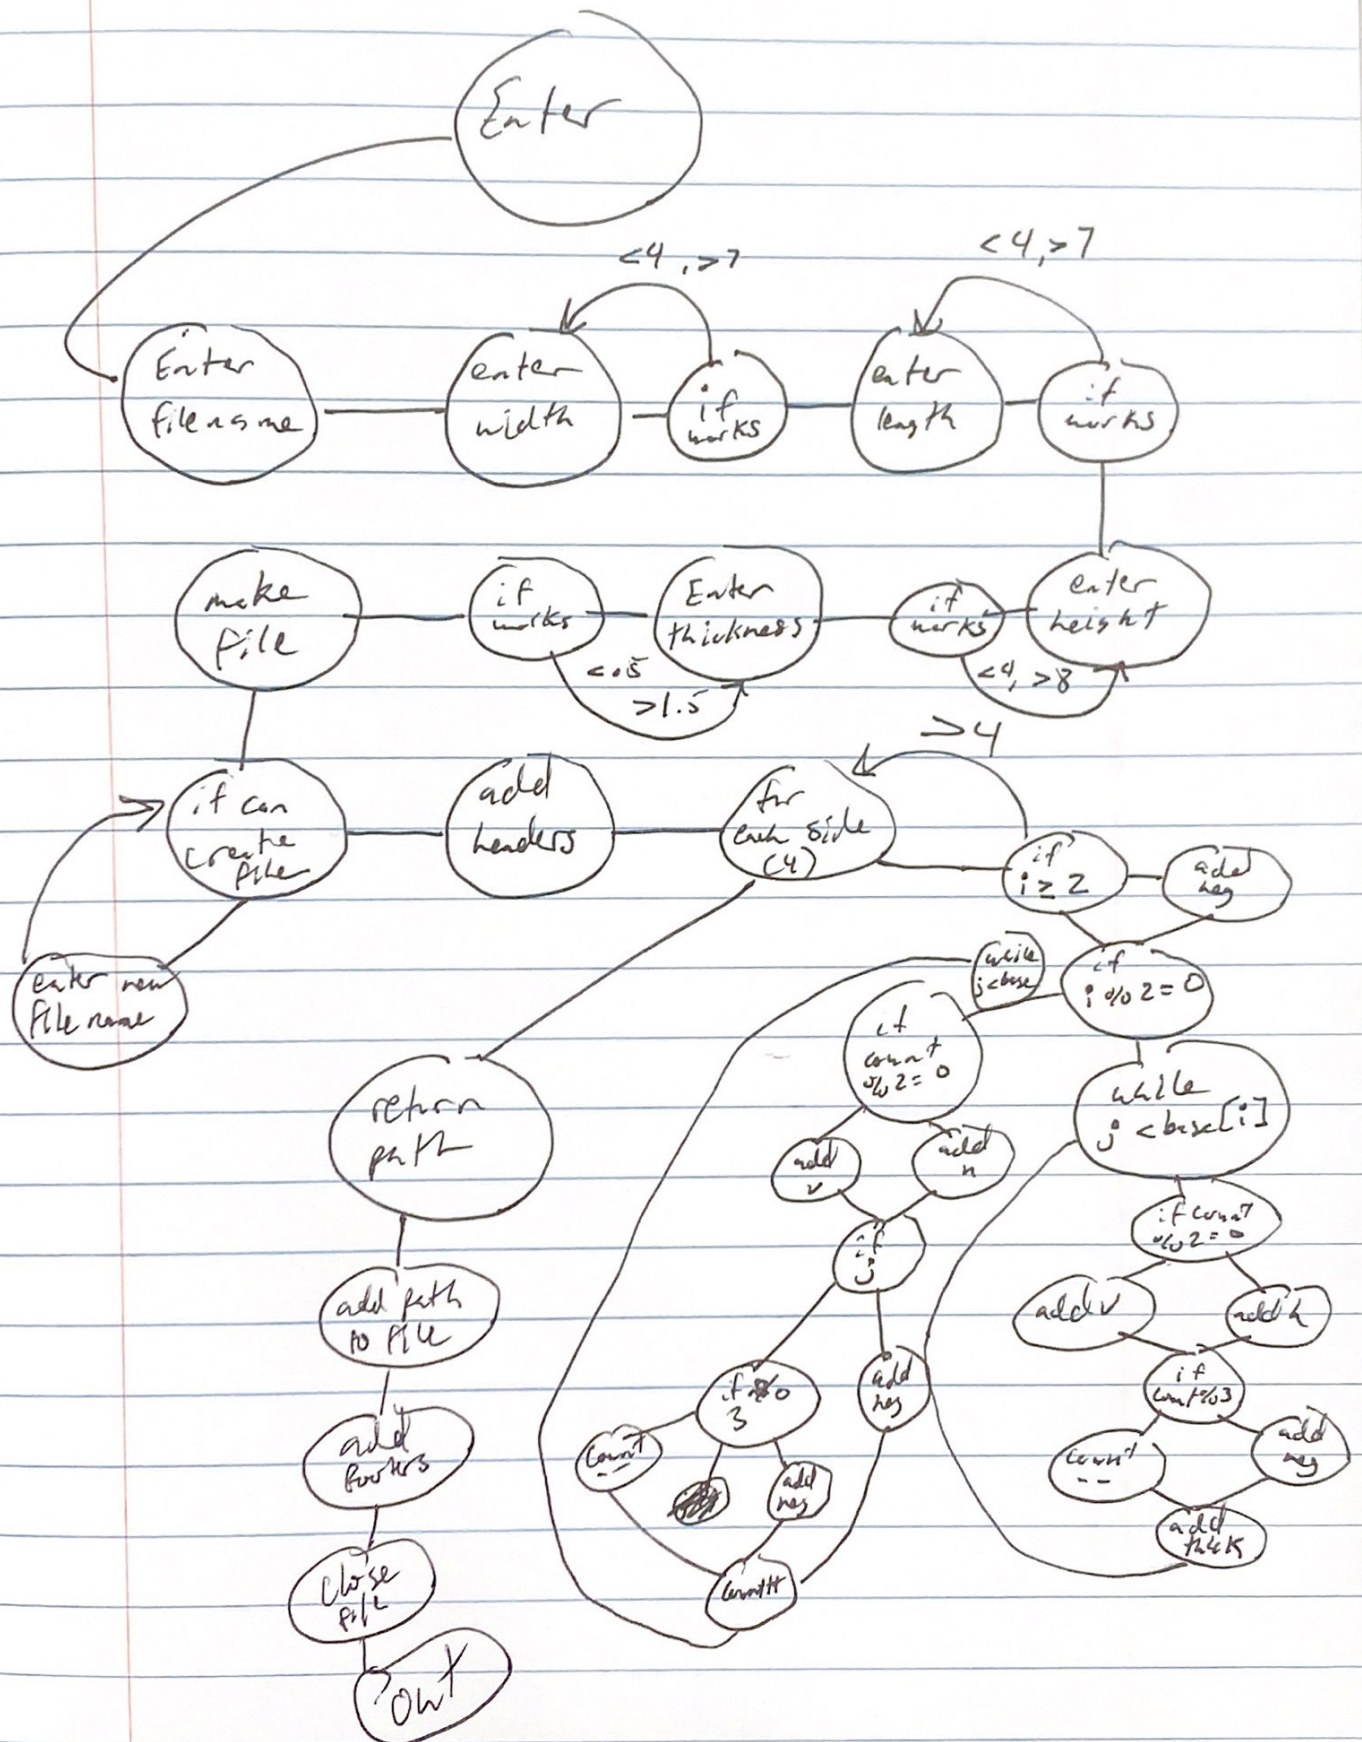 Enter
<4, >7
<4, >7
Enter
filename
enter
width
if
works
enter
length
if
works
make
file
if
works
Enter
thickness
if
works
enter
height
<.5
>1.5
<4, >8
>4
if can
create
file
add
headers
for
each side
(4)
if
i ≥ 2
add
neg
enter new
file name
while
j<base
if
i % 2 = 0
if
count
% 2 = 0
while
j < base[i]
return
path
add
v
add
n
if count
% 2 = 0
if
j
add v
add h
add path
to file
if %
3
add
neg
if
count % 3
add
footers
count
--
add
neg
count
--
add
neg
add
thick
close
file
count++
out